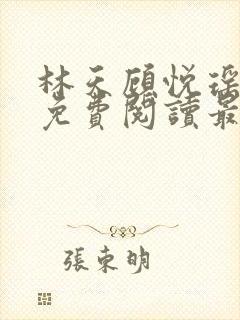 林天顾悦瑶
免費閱讀最
張東明